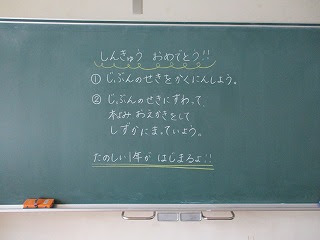 しんきゅう おめでとう!!
① じぶんのせきをかくにんしよう。
② じぶんのせきにすわって、
本よみ おえかきをして
しずかにまっていよう。
たのしい1年が はじまるよ!!